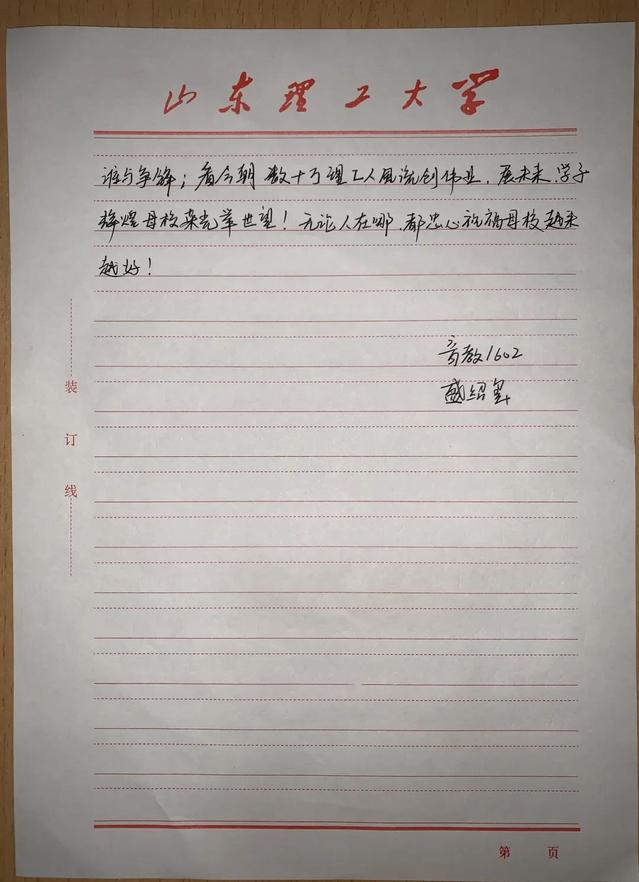 山东理工大学
谁与争锋；看今朝 数十万理工人风流创伟业，展未来，学子
辉煌母校荣光举世望！无论人在哪，都忠心祝福母校越来
越好！
音教1602
盛绍
装
订
线
第 页